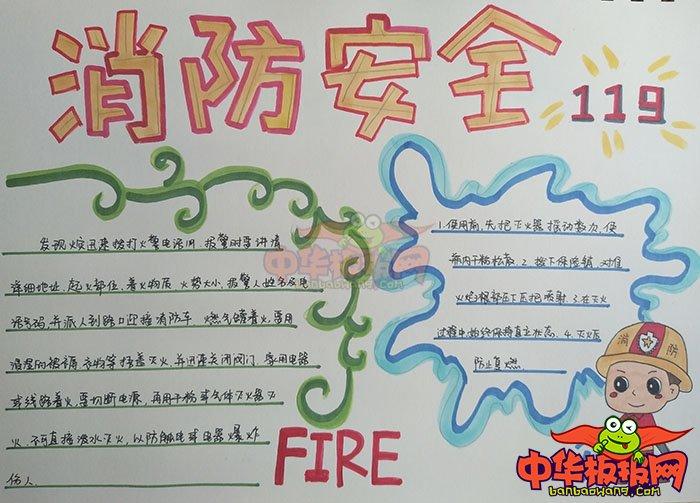 消防安全
119
发现火灾迅速拨打火警电话119，报警时要讲清
详细地址、起火部位、着火物质、火势大小、报警人姓名及电
话号码，并派人到路口迎接消防车。燃气罐着火，要用
浸湿的被褥、衣物等捂盖灭火，并迅速关闭阀门，家用电器
或线路着火，要切断电源，再用干粉或气体灭火器灭
火，不可直接泼水灭火，以防触电或电器爆炸
伤人。
1.使用前，先把灭火器摇动数次，使
瓶内干粉松散。2.拔下保险销，对准
火焰根部压下压把喷射。3.在灭火
过程中始终保持直立状态。4.灭火后
防止复燃
FIRE
消 防
中华板报网
中华板报网
banbaowang.com